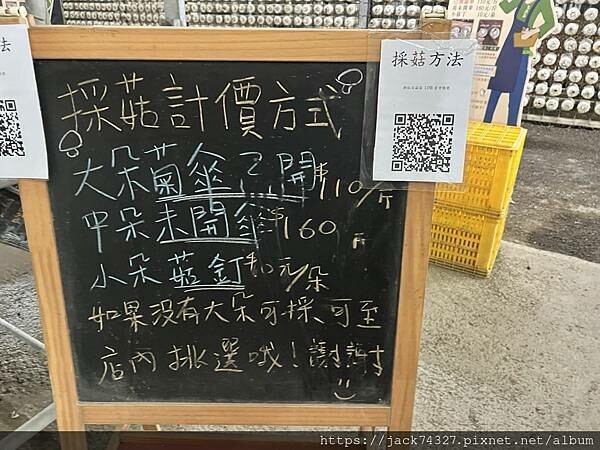 採菇計價方式
大朵菌傘已開$110/斤
中朵未開傘$160/斤
小朵菇釘$10元/朵
如果沒有大朵可採、可至
店內挑選哦!謝謝
採菇方法
https://jack74327.pixnet.net/album